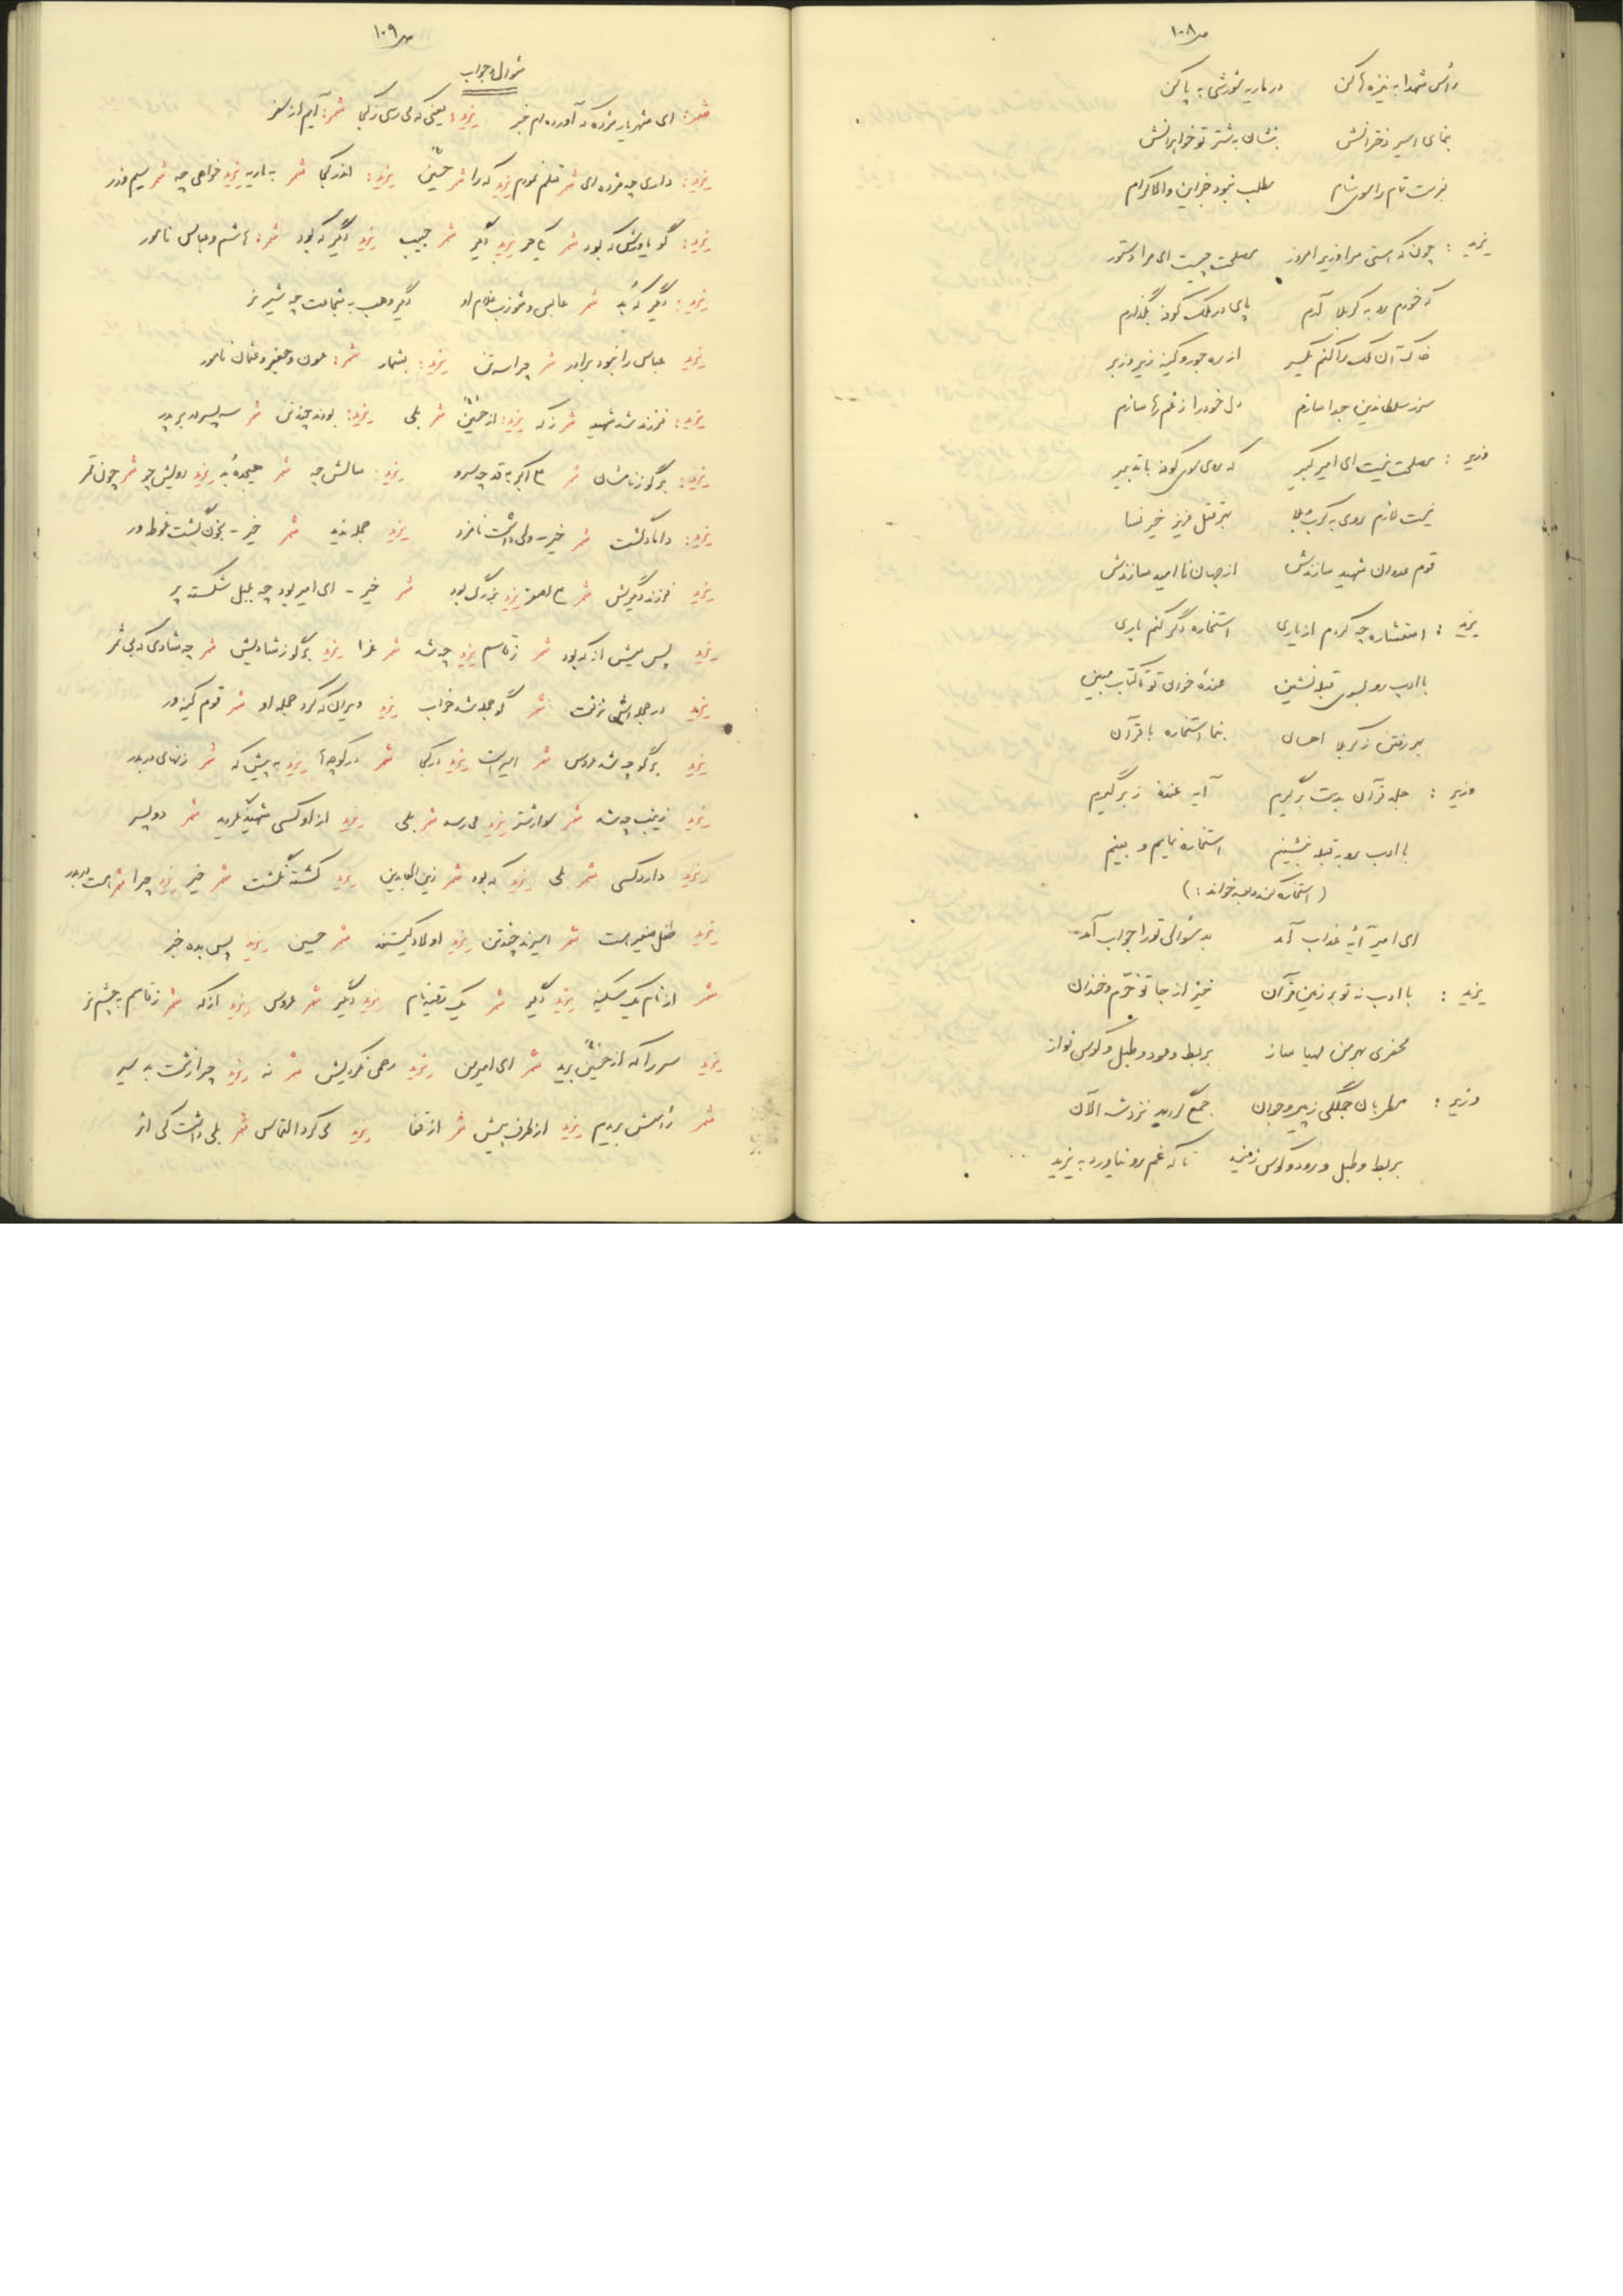 ص ۱۰۸
رأس شهدا به نیزه ها کن در ماریه شورشی به پا کن
بنمای اسیر دخترانش بنشان به شتر تو خواهرانش
بفرست تمام را سوی شام مطلب نبود جز این والاکرام
یزید : چون که هستی مرا وزیر امروز مصلحت چیست ای مرا دستور
که خودم رو به کربلا آرم پای در ملک کوفه بگذارم
خاک آن ملک را کنم یکسر از ره جور و کینه زیر و زبر
سر ز سلطان دین جدا سازم دل خود را ز غم رها سازم
وزیر : مصلحت نیست ای امیر کبیر که روی سوی کوفه با تدبیر
نیست لازم روی به کرب و بلا بهر قتل عزیز خیر نسا
قوم عدوان شهید سازندش از جهان ناامید سازندش
یزید : استشاره چه کردم از یاری استخاره دگر کنم باری
با ادب رو بسوی قبله نشین عمده خوان تو تا کتاب مبین
بهر رفتن ز کربلا احسان بنما استخاره با قرآن
وزیر : جلد قرآن بدست برگیرم آیه عمده ز بر گیرم
با ادب رو به قبله بنشینم استخاره نمایم و بینم
(استخاره کند و بعد خواند :)
ای امیر آیهٔ عذاب آمد بد سؤالی تو را جواب آمد
یزید : با ادب نه تو بر زمین قرآن خیز از جا تو خرّم و خندان
محضری بهر من مهیا ساز بربط و عود و طبل و کوس نواز
وزیر : مطربان جملگی ز پیر و جوان جمع گردید نزد شه الآن
بربط و طبل و رود و کوس زنید تا که غم رو نیاورد به یزید
ص ۱۰۹
سؤال و جواب
شمر: ای شهریار مژده که آورده ام خبر یزید: یعنی که میرسی ز کجا شمر: آیم از سفر
یزید: داری چه مژده ای شمر قتلم نمودم یزید که را شمر حسین یزید: اندر کجا شمر به ماریه یزید خواهی چه شمر سیم و زر
یزید: گو یاورش که بود شمر یکی حر یزید دگر شمر حبیب یزید دگر که بود شمر: هاشم و عباس نامور
یزید: دگر که بد شمر عابس و شوذب غلام او دگر وهب به شجاعت چه شیر نر
یزید عباس را نبود برادر شمر چرا سه تن یزید: بشمار شمر: عون و جعفر و عثمان نامور
یزید: فرزند شد شهید شمر ز که یزید: از حسین شمر بلی یزید: بودند چند تن شمر سه پسر در بر پدر
یزید: برگو ز نامشان شمر علی اکبر به قد چه سرو یزید: سالش چه شمر هیجده بد یزید رویش چو شمر چون قمر
یزید: داماد گشت شمر خیر - ولی داشت نامزد یزید حجله ندید شمر خیر - بخون گشت غوطه ور
یزید فرزند دیگرش شمر علی اصغر یزید بزرگ بود شمر خیر - ای امیر بود چه بلبل شکسته پر
یزید پس عیش از که بود شمر ز قاسم یزید چه شد شمر عزا یزید برگو ز شادیش شمر چه شادی که بی ثمر
یزید در حجله هاش می نرفت شمر گو حجله شد خراب یزید ویران که کرد حجله او شمر قوم کینه ور
یزید برگو چه شد عروس شمر اسیر است یزید در کجا شمر در کوچه ها یزید به پیش که شمر زنهای در بدر
یزید زینب چه شد شمر سوار شتر یزید میرسد شمر بلی یزید از او کسی شهید گردید شمر دو پسر
یزید دارد کسی شمر بلی یزید که بود شمر زین العابدین یزید کشته نگشت شمر خیر یزید چرا شمر هست در بدر
یزید طفل صغیر هست شمر اسیرند چند تن یزید اولاد کیستند شمر حسین یزید پس بده خبر
شمر از نام یک سکینه یزید دگر شمر یک رقیه نام یزید دگر شمر عروس یزید از که شمر ز قاسم به چشم تر
یزید سر را که از حسین برید شمر ای امیر من یزید رحمی نکردیش شمر نه یزید چرا زشت بد سیر
شمر رأسش بریدم یزید از طرف پیش شمر از قفا یزید می کرد التماس شمر بلی داشت کی اثر